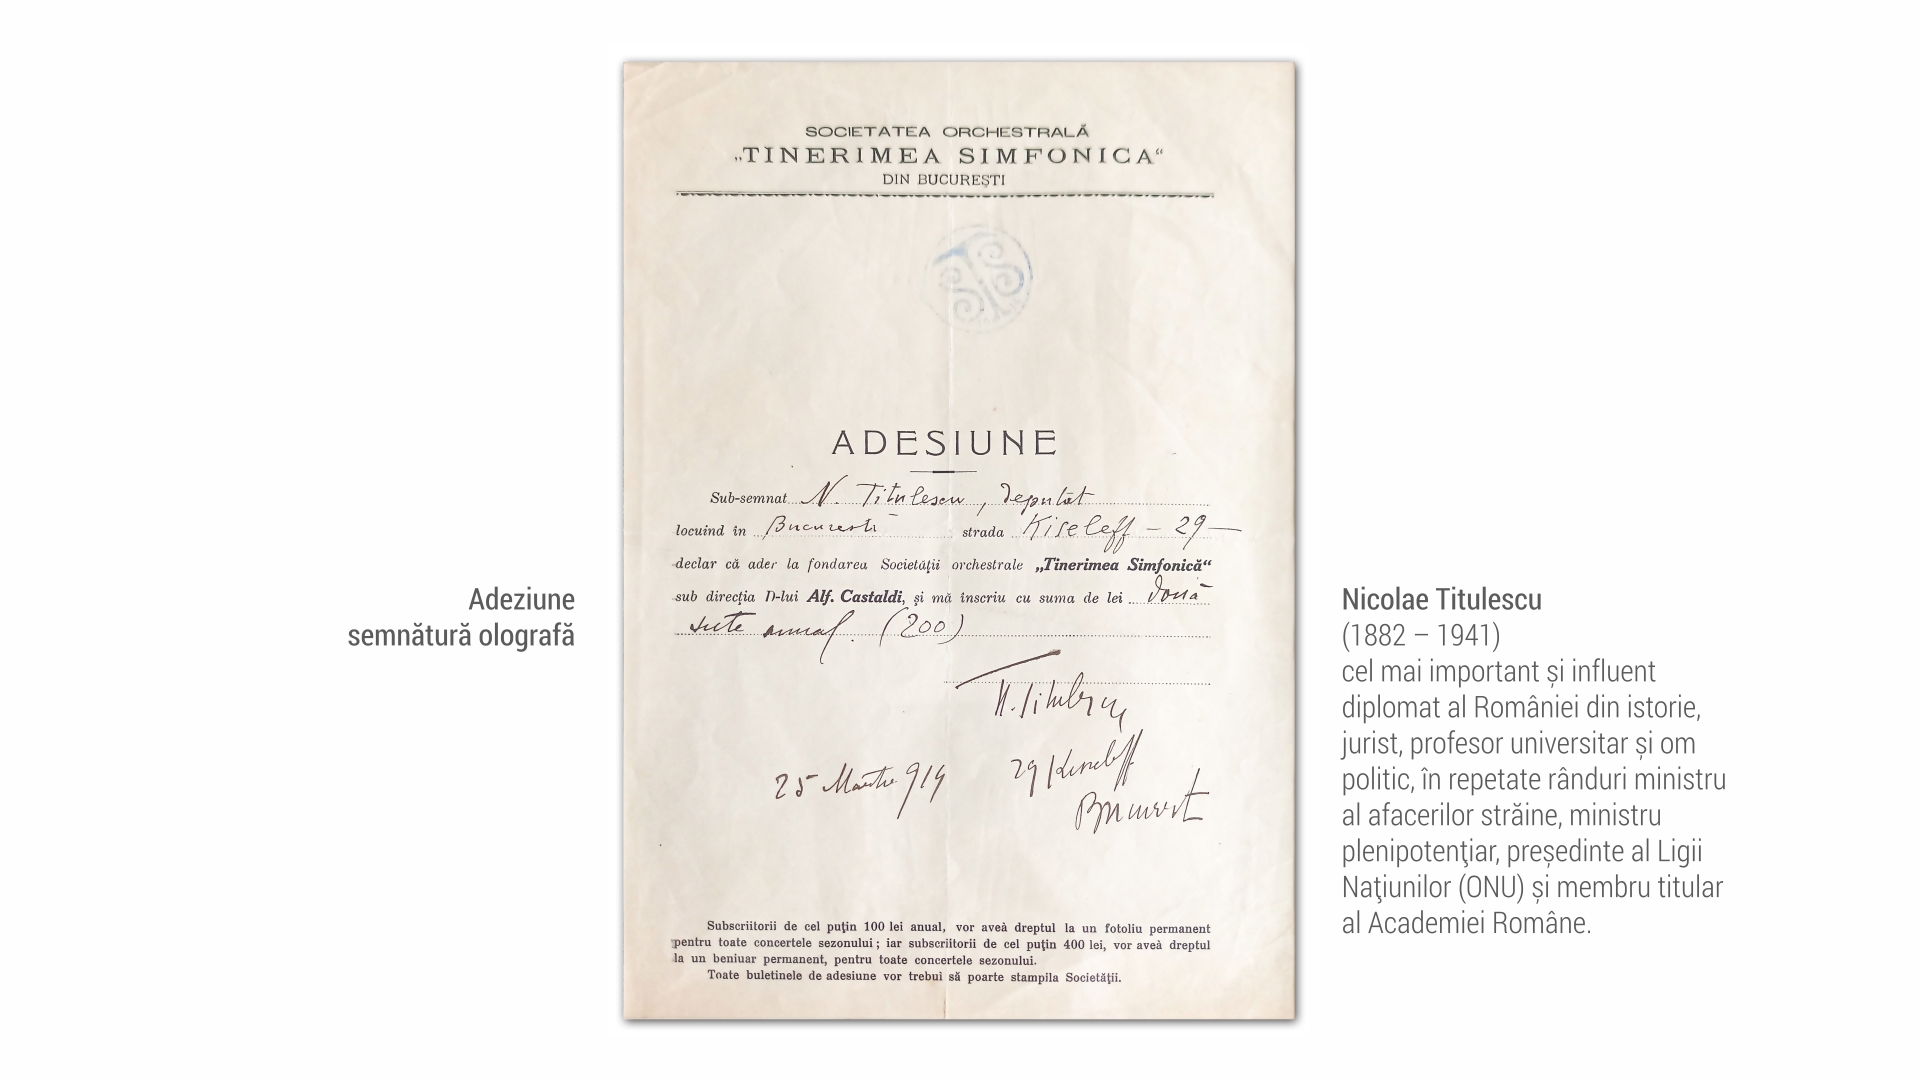 SOCIETATEA ORCHESTRALĂ
„TINERIMEA SIMFONICA“
DIN BUCUREȘTI
ADESIUNE
Sub-semnat N. Titulescu, deputat
locuind în Bucuresti strada Kiseleff – 29 –
declar că ader la fondarea Societății orchestrale „Tinerimea Simfonică“
sub direcția D-lui Alf. Castaldi, și mă înscriu cu suma de lei două
sute anual. (200)
N. Titulescu
29 Kiseleff
25 Martie 914
Bucuresti
Subscriitorii de cel puțin 100 lei anual, vor aveà dreptul la un fotoliu permanent
pentru toate concertele sezonului; iar subscriitorii de cel puțin 400 lei, vor aveà dreptul
la un beniuar permanent, pentru toate concertele sezonului.
Toate buletinele de adesiune vor trebui să poarte stampila Societății.
Adeziune
semnătură olografă
Nicolae Titulescu
(1882 – 1941)
cel mai important și influent
diplomat al României din istorie,
jurist, profesor universitar și om
politic, în repetate rânduri ministru
al afacerilor străine, ministru
plenipotenţiar, președinte al Ligii
Naţiunilor (ONU) și membru titular
al Academiei Române.